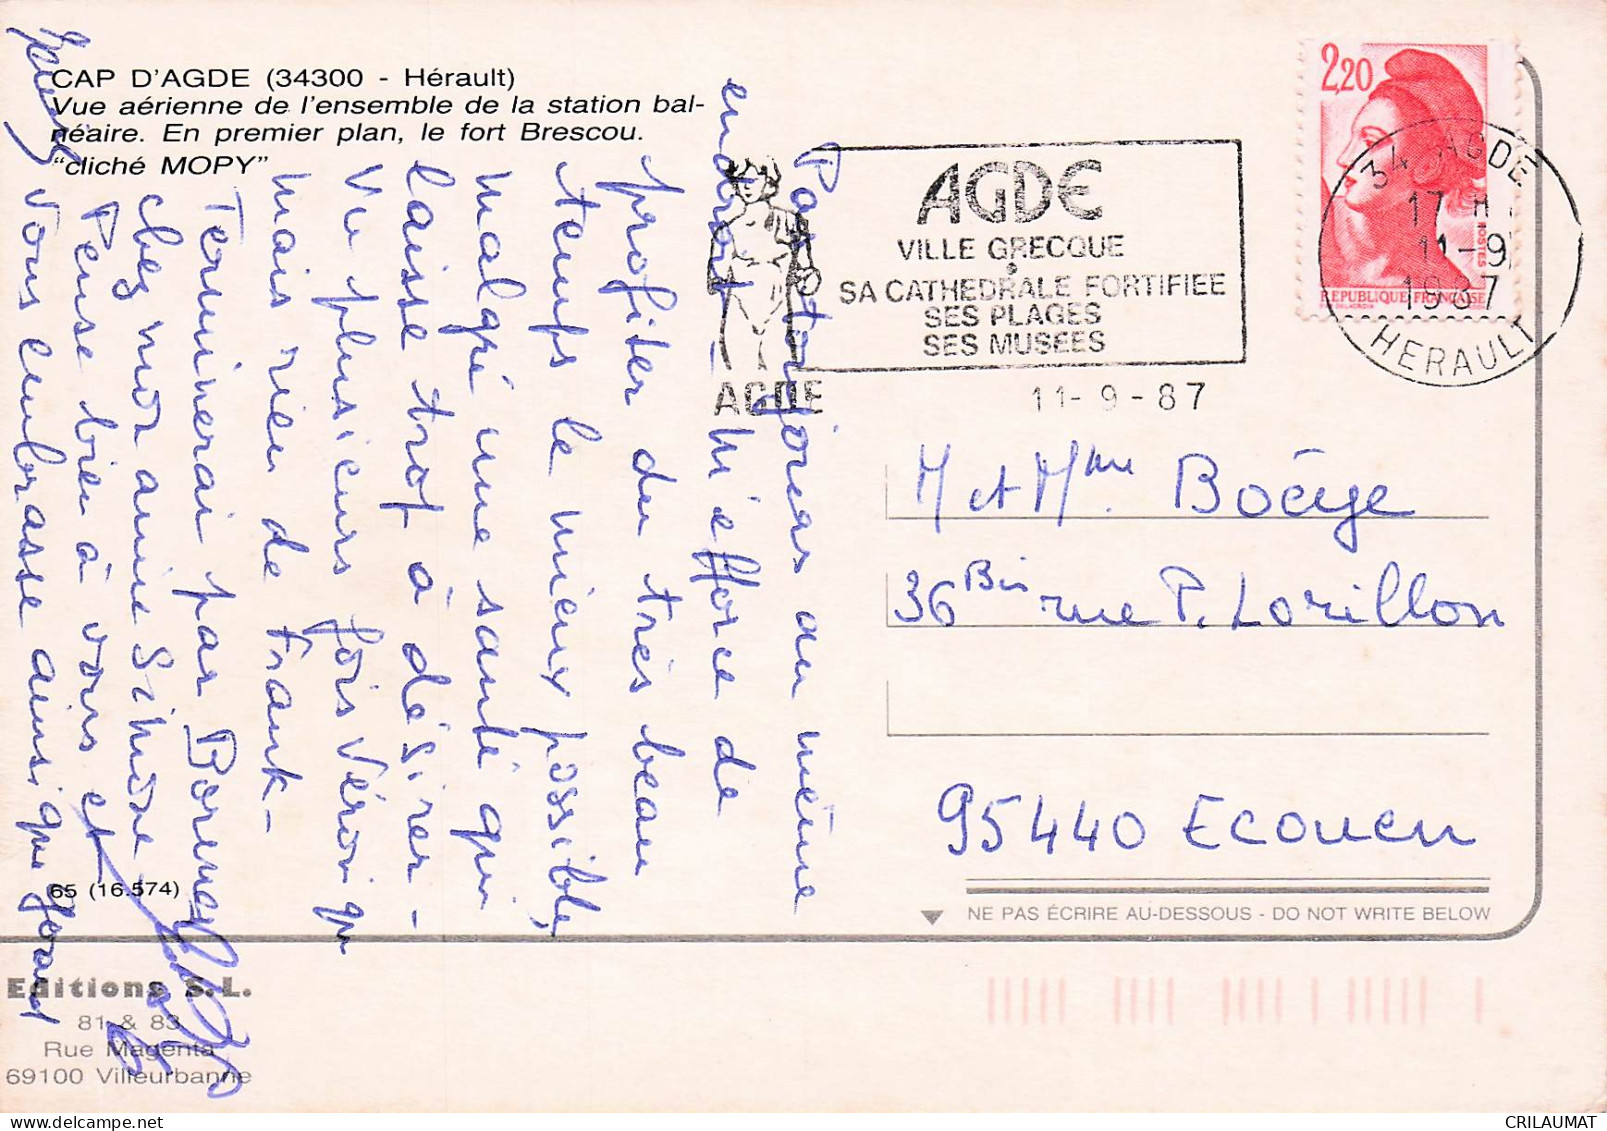 CAP D'AGDE (34300 - Hérault)
Vue aérienne de l'ensemble de la station bal-
néaire. En premier plan, le fort Brescou.
"cliché MOPY"
Pas toujours au même
endroit, m'efforce de
profiter du très beau
temps le mieux possible,
malgré une santé qui
laisse trop à désirer -
Vu plusieurs fois Véroni que
mais rien de Frank -
Terminerai par
chez mon amie Simone
Pense bien à vous et
vous embrasse ainsi que Gérard
65 (16.574)
Editions S.L.
81 & 83
Rue Magenta
69100 Villeurbanne
AGDE
AGDE
VILLE GRECQUE
SA CATHEDRALE FORTIFIEE
SES PLAGES
SES MUSEES
11- 9 - 87
2,20
POSTES
REPUBLIQUE FRANÇAISE
34 AGDE
17 H
11-9
1987
HERAULT
M et Mme Boëye
36 Bis rue P. Lorillon
95440 Ecouen
NE PAS ÉCRIRE AU-DESSOUS - DO NOT WRITE BELOW
CRILAUMAT